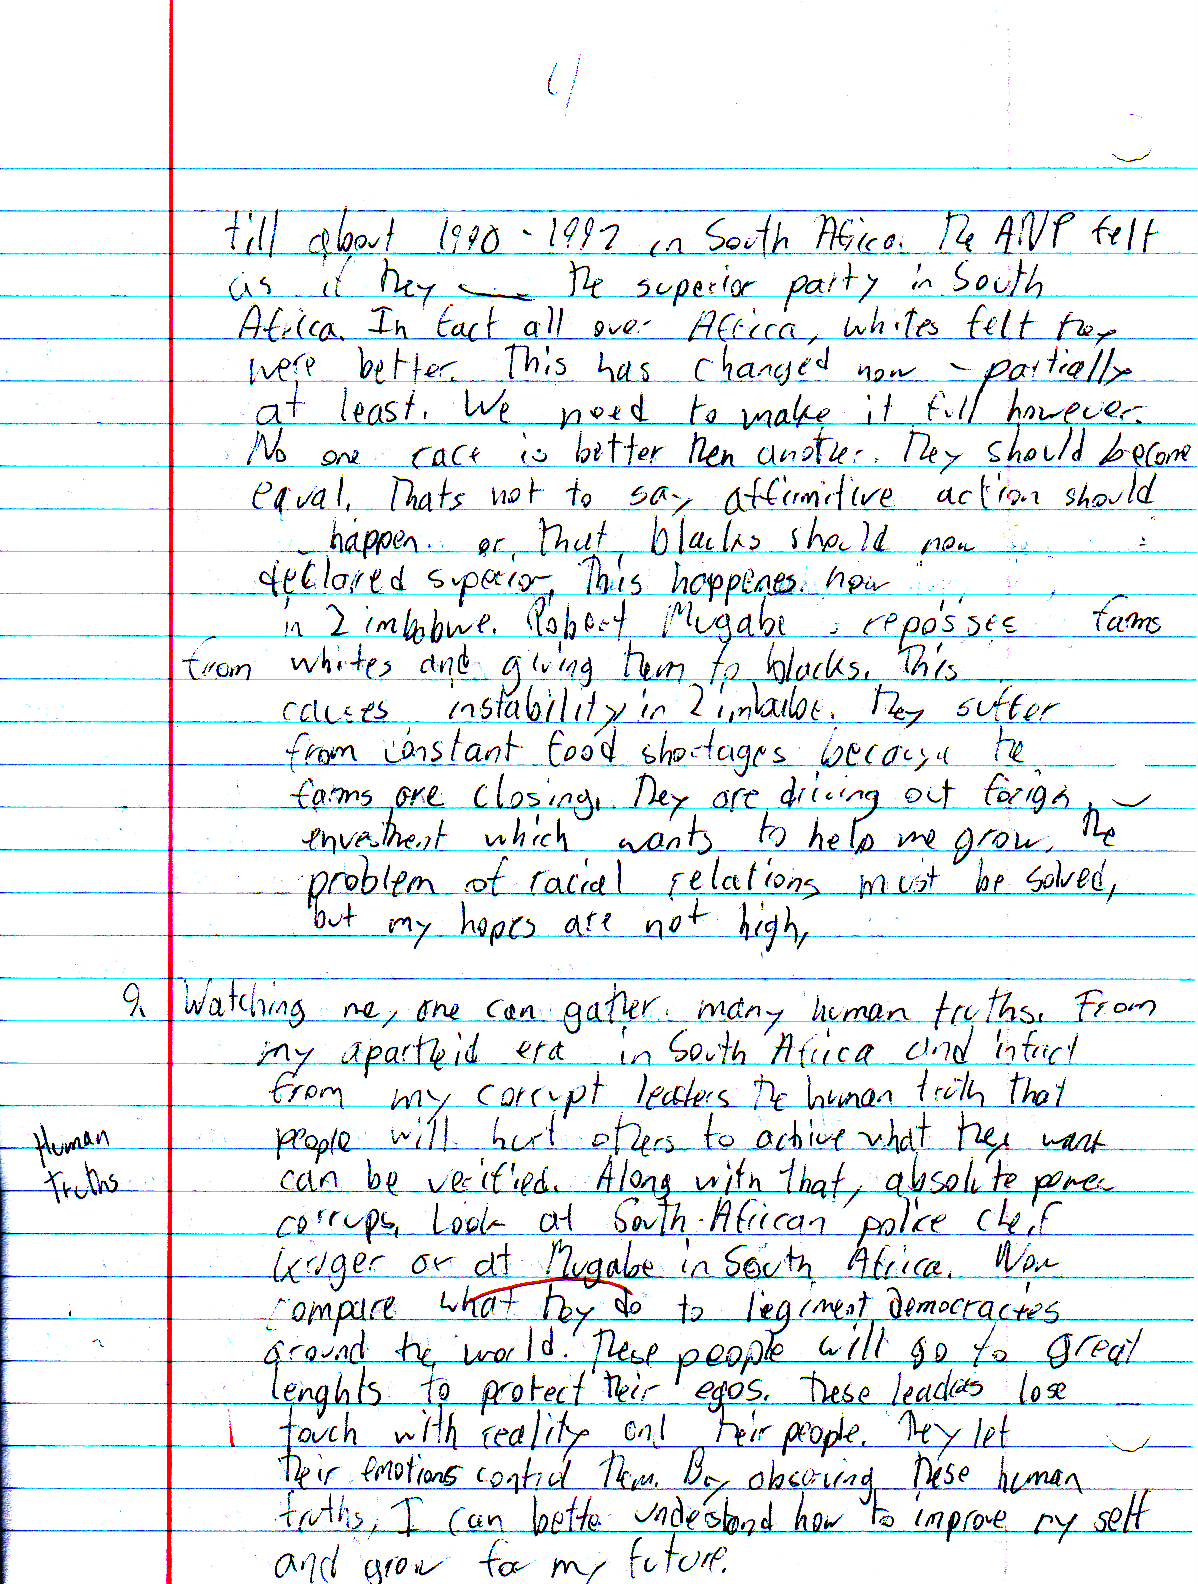 4
till about 1990 - 1992 in South Africa. The ANP felt
as if they the superior party in South
Africa. In fact all over Africa, whites felt they
were better. This has changed now - partially
at least. We need to make it full however.
No one race is better then another. They should become
equal. Thats not to say affirmitive action should
happen. or that blacks should now
declared superior. This happenes now
in Zimbobwe. Robert Mugabe reposses farms
from whites and giving them to blacks. This
causes instability in Zimbabe. They suffer
from constant food shortages because the
farms are closing. They are driving out foreign
investment which wants to help me grow. The
problem of racial relations must be solved,
but my hopes are not high.
9. Watching me, one can gather many human truths. From
my apartheid era in South Africa and infact
from my corrupt leaders the human truth that
Human
people will hurt others to achive what they want
truths
can be verified. Along with that, absolute power
corrups. Look at South African police cheif
Kruger or at Mugabe in South Africa. Now
compare what they do to democracies
around the world. These people will go to great
lenghts to protect their egos. These leaders lose
touch with reality and their people. They let
their emotions control them. By observing these human
truths, I can better understand how to improve my self
and grow for my future.